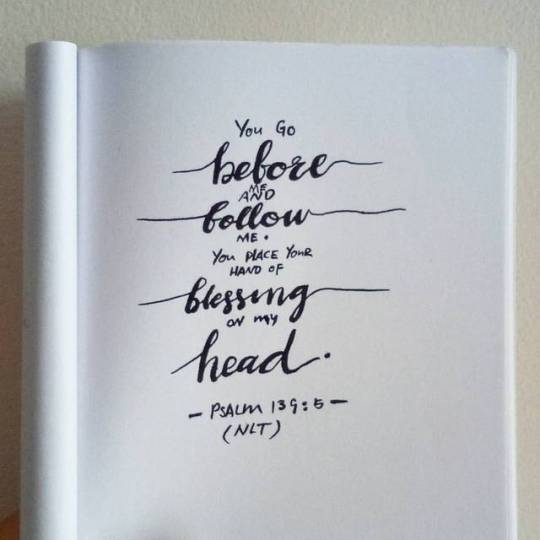 You Go
before
ME
AND
follow
ME.
You PLACE Your
HAND OF
blessing
on my
head.
- PSALM 139:5 -
(NLT)